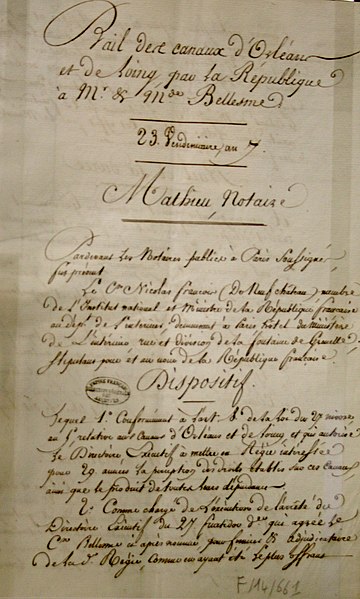 Bail des canaux d'Orléans
et de Loing par la République
à Mr. & Mde Bellesme
23. Vendémiaire, an 7.
Mathieu, Notaire
Pardevant les Notaires publics à Paris Soussignés
fut présent
Le Cen Nicolas françois (De Neufchateau) membre
de l'Institut national et Ministre de la République française
au dépt. de l'intérieur, demeurant à Paris hotel du ministère
de l'intérieur rue et division de la fontaine de Grenelle
stipulant pour et au nom de la République française.
Dispositif.
Lequel 1°. Conformément à l'art. 8 de la loi du 27 nivose
au 5 relative aux Canaux d'Orléans et de Loing et qui autorise
le Directoire Exécutif a mettre en Régie intéressée
pour 29 années la perception des droits établis sur ces Canaux
ainsi que le produit de toutes leurs dépendances
2°. Comme chargé de l'exécution de l'arrêté du
Directoire Exécutif du 27 fructidor der. qui agrée le
Cen Bellesme ci après nommé pour fermier et adjudicataire
de la de. Régie comme en ayant été le plus offrant
F/14/661